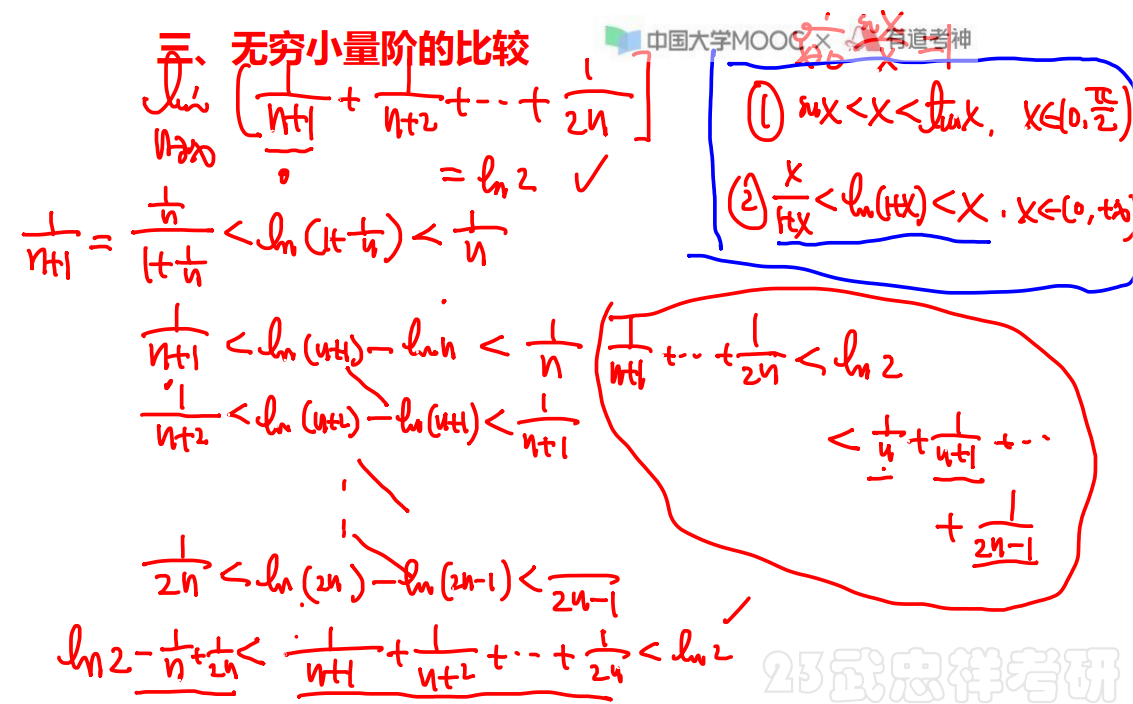 三、无穷小量阶的比较
中国大学MOOC × 有道考神
lim n→∞ [1/(n+1) + 1/(n+2) + ··· + 1/(2n)]
= ln 2 ✓
① sin x < x < tan x, x∈(0, π/2)
② x/(1+x) < ln(1+x) < x, x∈(0, +∞)
1/(n+1) = (1/n)/(1+1/n) < ln(1+1/n) < 1/n
1/(n+1) < ln(n+1) − ln n < 1/n
1/(n+2) < ln(n+2) − ln(n+1) < 1/(n+1)
1/(2n) < ln(2n) − ln(2n−1) < 1/(2n−1)
1/(n+1) + ··· + 1/(2n) < ln 2
< 1/n + 1/(n+1) + ···
+ 1/(2n−1)
ln 2 − 1/n + 1/(2n) < 1/(n+1) + 1/(n+2) + ··· + 1/(2n) < ln 2 ✓
23武忠祥考研